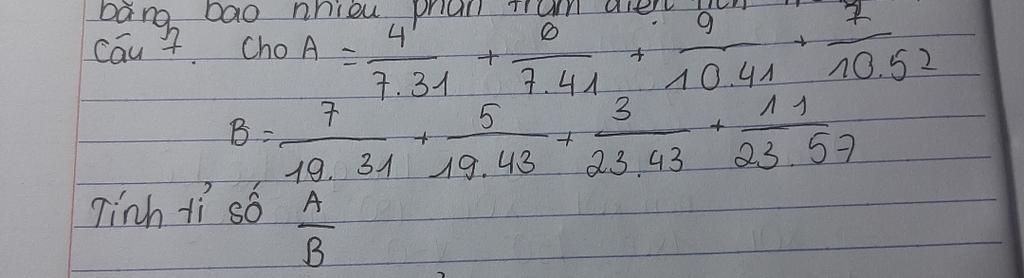 bằng bao nhiêu phần trăm diện tích
Câu 7. Cho A = 4/7.31 + 6/7.41 + 9/10.41 + 7/10.52
B = 7/19.31 + 5/19.43 + 3/23.43 + 11/23.57
Tính tỉ số A/B